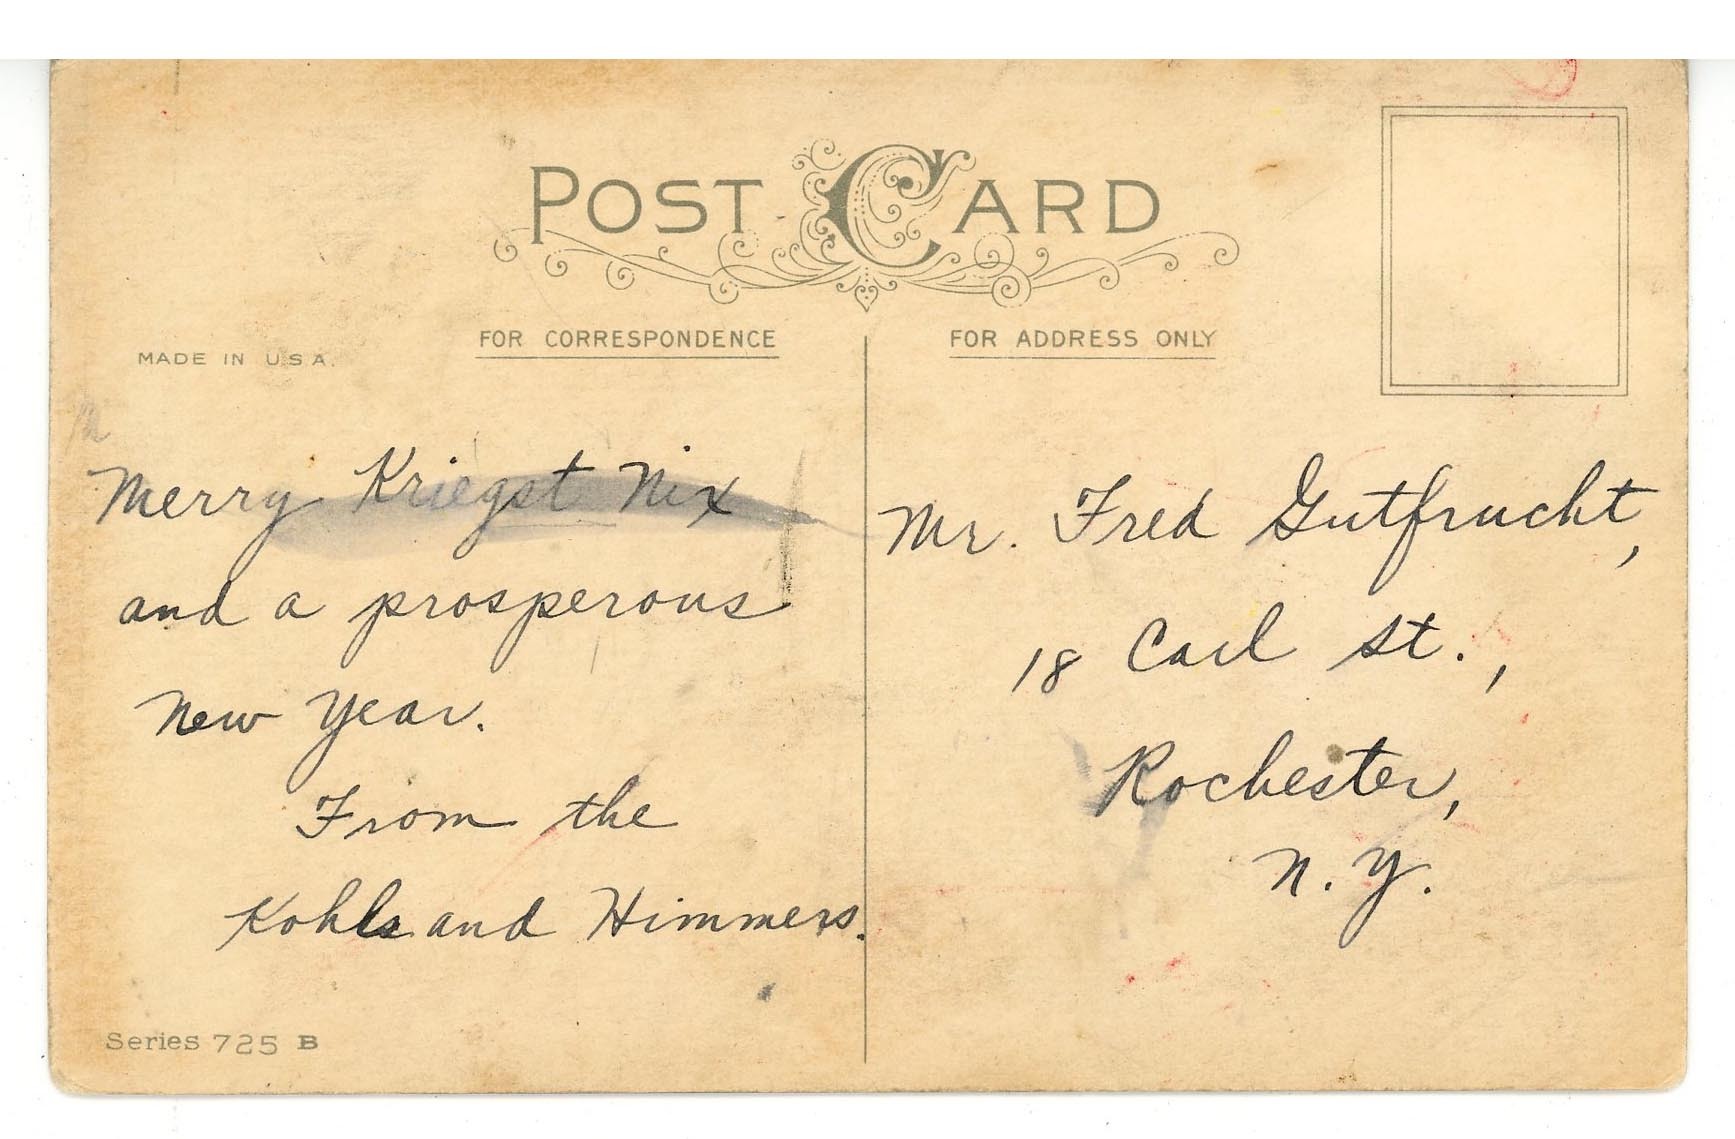 POST CARD
FOR CORRESPONDENCE
FOR ADDRESS ONLY
MADE IN U.S.A.
Merry Kriegst Nix
and a prosperous
New Year.
From the
Kohls and Himmers.
Mr. Fred Gutfrucht,
18 Carl St.,
Rochester,
N. Y.
Series 725 B